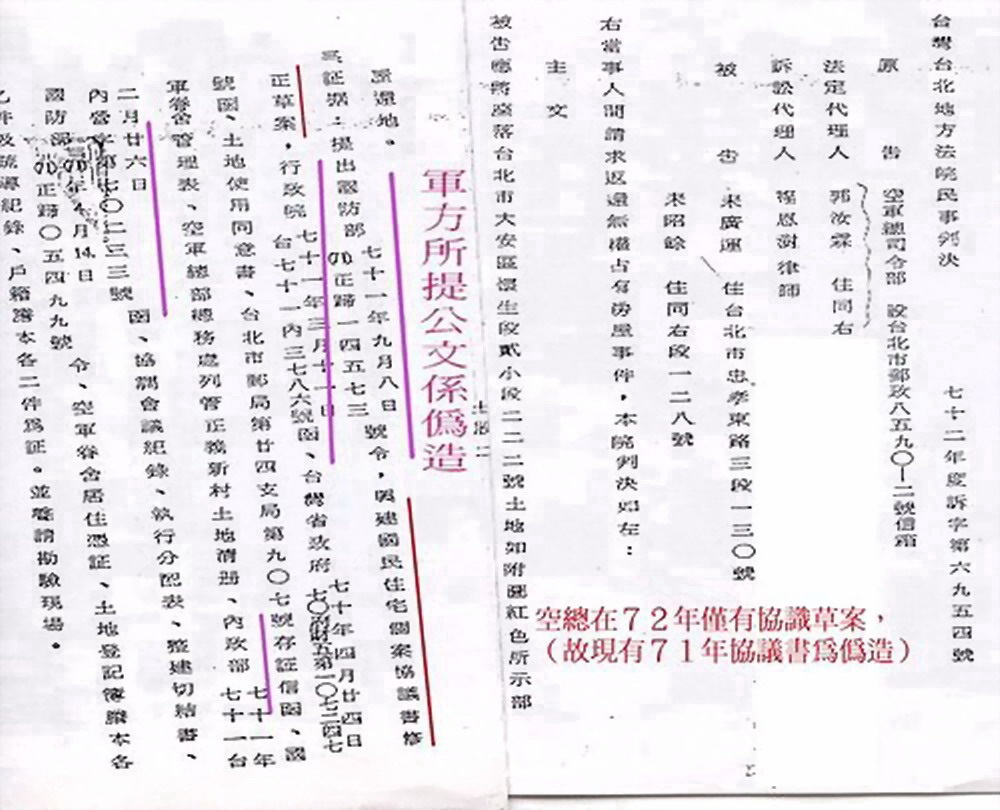 台灣台北地方法院民事判決
七十二年度訴字第六九五四號
原告 空軍總司令部 設台北市郵政八五九〇—二號信箱
法定代理人 郭汝霖 住同右
訴訟代理人 程恩澍律師
被告 朱廣運 住台北市忠孝東路三段一三〇號
朱昭餘 住同右段一二八號
右當事人間請求返還無權占有房屋事件，本院判決如左：
主文
被告應將座落台北市大安區懷生段貳小段二二二號土地如附圖紅色所示部
空總在７２年僅有協議草案，
（故現有７１年協議書爲僞造）
軍方所提公文係僞造
原還地。
七十一年九月八日
號令，興建國民住宅個案協議書修
証據：提出國防部
正歸一四五七三
七十年四月廿四日
正草案，行政院
七十一年三月十一日
台七十一內三七八六號函、台灣省政府
號函、土地使用同意書、台北市郵局第廿四支局第九〇七號存証信函、國
軍眷舍管理表、空軍總部總務處列管正義新村土地清册、內政部
七十一年
七十一台
二月廿六日
內營字第七〇二三三號
函、協調會議紀錄、執行分配表、整建切結書、
國防部
月14日
正歸〇五四九九號
令、空軍眷舍居住憑証、土地登記簿謄本各
乙件及疏導紀錄、戶籍謄本各二件爲証。並聲請勘驗現場。